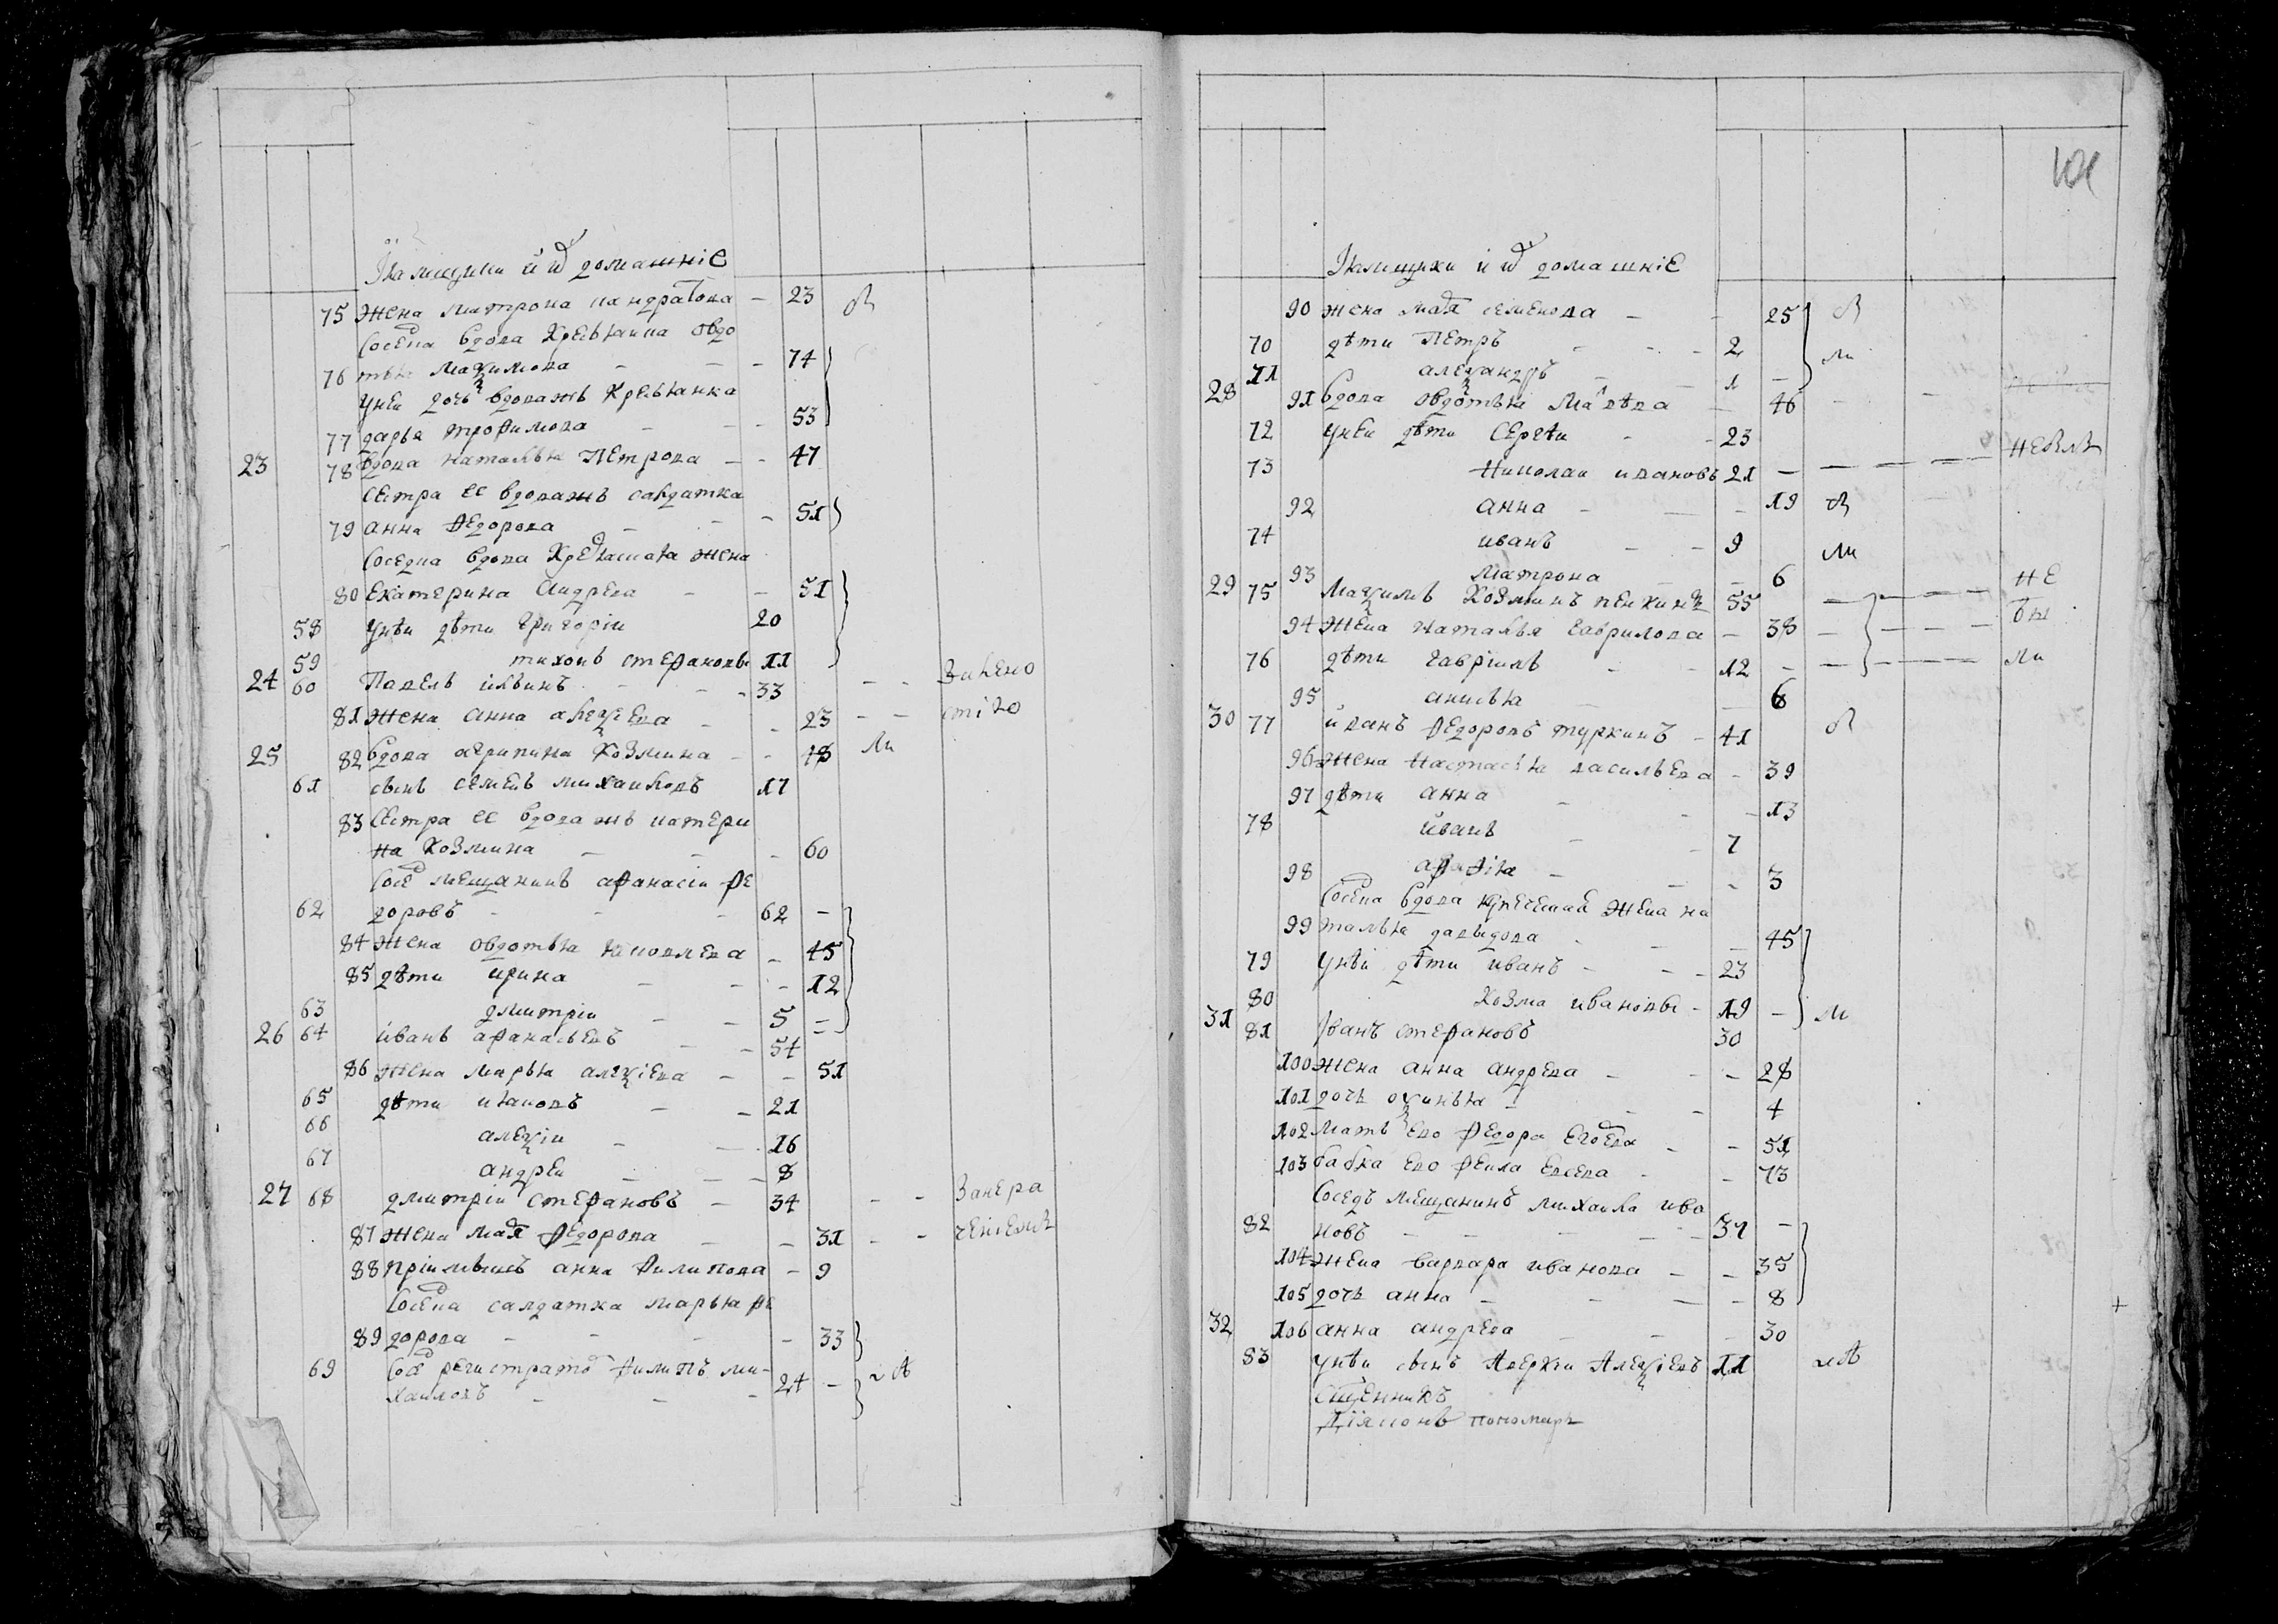 Ямщики и их домашніе
75 Жена Матрона Кандратова – 23
Соседка вдова Крестьянка Овдо
76 тья Маѯимова – 74
У неи дочь вдова жъ Крестьянка
77 дарья трофимова – 53
23 78 вдова наталья Петрова – 47
Сестра ее вдова жъ салдатка
79 анна Федорова – 51
Соседка вдова жена
80 Екатерина Андреева – 51
58 У неи дѣти григореи 20
59 тихонъ стефановы 11
24 60 Павелъ ильинъ – 33
81 Жена анна алеѯеева – 23
25 82 вдова агрипина Козмина – 48
61 сынъ семенъ михаиловъ 17
83 Сестра ее вдова жъ катери
на Козмина – 60
Сосед мещанинъ афанасіи Фе
62 доровъ – 62
84 Жена овдотья яковлева – 45
85 дѣти ирина – 12
63 дмитріи – 5
26 64 иванъ афанасьевъ – 54
86 Жена марья алеѯіева – 51
65 дѣти иваковъ – 21
66 алеѯіи – 16
67 андреи – 8
27 68 дмитріи стефановъ – 34
87 Жена Марья федорова – 31
88 пріимышъ анна филипова – 9
Соседка салдатка марья фе
89 дорова – 33
69 Сосед регистраторъ филипъ ми-
хаиловъ – 24
101
Ямщики и их домашніе
90 жена Марья семенова – 25
70 дѣти Петръ – 2
71 алеѯандръ – 1
28 91 вдова овдотья – 46
72 у неи дѣти Сергеи – 23
73 Николаи ивановъ 21
92 анна – 19
74 иванъ – 9
93 Матрона – 6
29 75 Маѯимъ Козминъ пенкинъ 55
94 жена наталья гаврилова – 38
76 дѣти гавріилъ – 12
95 анисья – 6
30 77 иванъ федоровъ туркинъ – 41
96 жена настасья васильева – 39
97 дѣти анна – 13
78 иванъ – 7
98 – 3
Соседка вдова жена на
99 талья давыдова – 45
79 У неи дѣти иванъ – 23
80 Козма ивановы – 19
31 81 Иванъ стефановъ 30
100 жена анна андреева – 28
101 дочь оѯинья – 4
102 мать ево федора – 51
103 бабка ево – 73
Соседъ мещанинъ михаила ива
82 новъ – 37
104 жена варвара иванова – 35
105 дочь анна – 8
32 106 анна андреева – 30
83 У неи сынъ Аверкіи Алеѯіевъ 11
Сщенникъ
пономарь